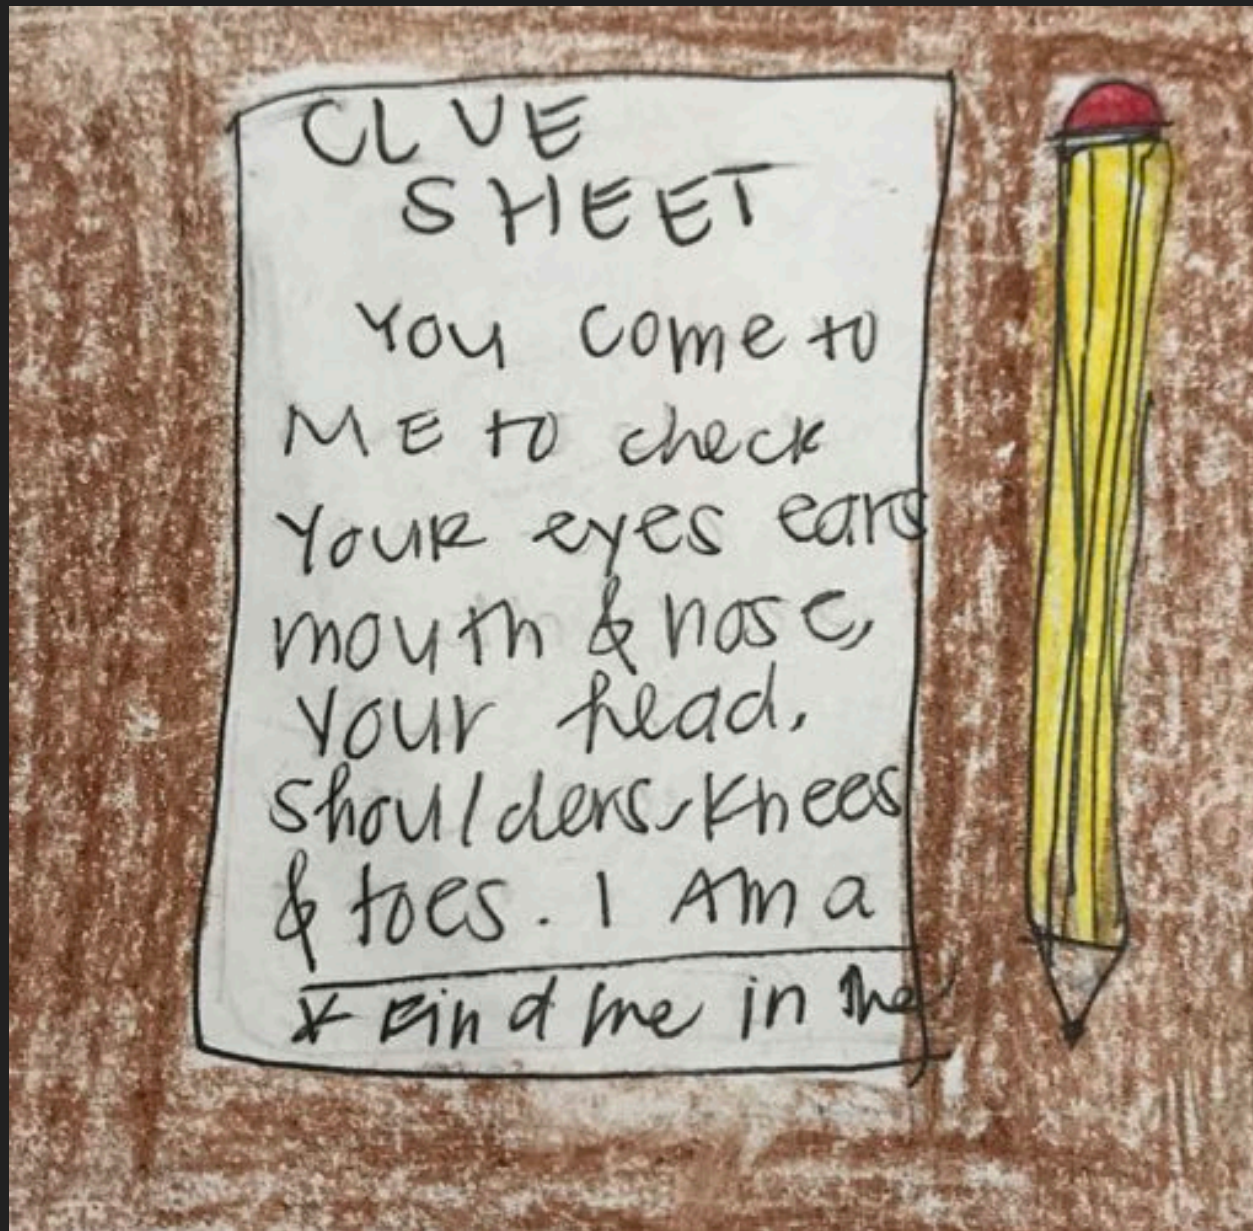 CLUE
SHEET
You come to
ME to check
YOUR eyes ears
mouth & nose,
Your head,
shoulders, knees
& toes. I AM a
* Find me in the